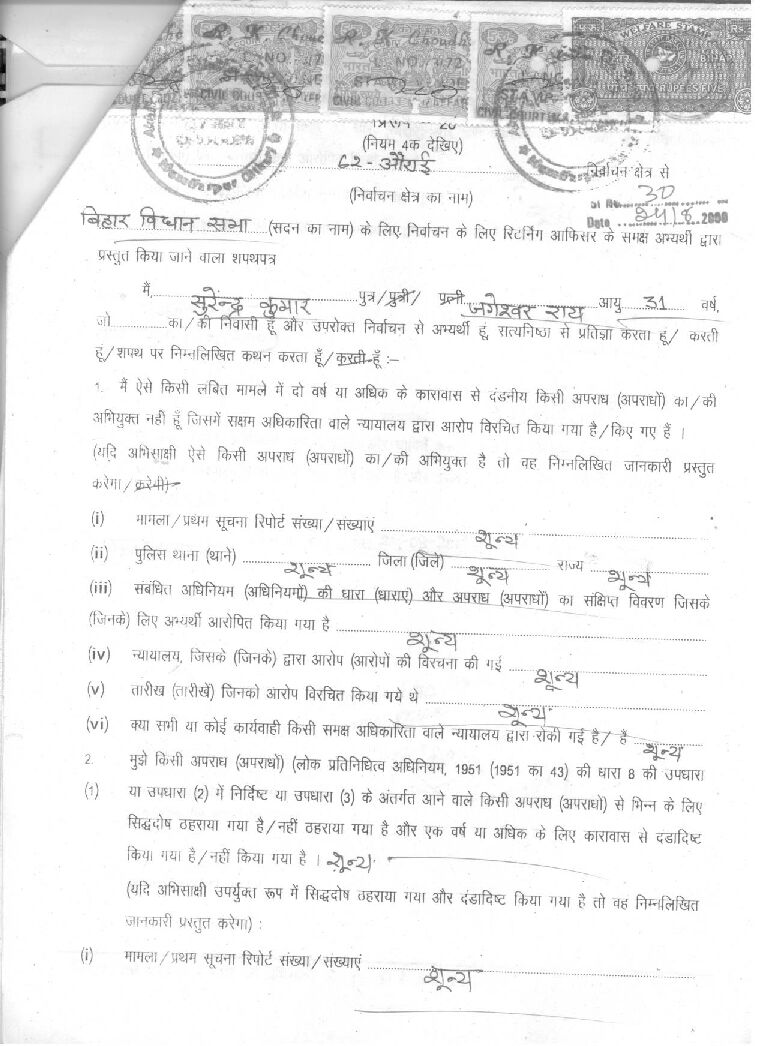 WELFARE STAMP
RUPEES FIVE
प्ररूप - 26
(नियम 4क देखिए)
62 - औराई
निर्वाचन क्षेत्र से
(निर्वाचन क्षेत्र का नाम)
30
Date 24/8
बिहार विधान सभा (सदन का नाम) के लिए निर्वाचन के लिए रिटर्निंग आफिसर के समक्ष अभ्यर्थी द्वारा
प्रस्तुत किया जाने वाला शपथपत्र
मैं, सुरेन्द्र कुमार पुत्र/पुत्री/ पत्नी जगेश्वर राय आयु 31 वर्ष,
जो............का/की निवासी हूँ और उपरोक्त निर्वाचन से अभ्यर्थी हूं, सत्यनिष्ठा से प्रतिज्ञा करता हूं/ करती
हूं/शपथ पर निम्नलिखित कथन करता हूँ/करती हूँ :–
1. मैं ऐसे किसी लंबित मामले में दो वर्ष या अधिक के कारावास से दंडनीय किसी अपराध (अपराधों) का/की
अभियुक्त नहीं हूँ जिसमें सक्षम अधिकारिता वाले न्यायालय द्वारा आरोप विरचित किया गया है/किए गए हैं ।
(यदि अभिसाक्षी ऐसे किसी अपराध (अपराधों) का/की अभियुक्त है तो वह निम्नलिखित जानकारी प्रस्तुत
करेगा/करेगी)
(i) मामला/प्रथम सूचना रिपोर्ट संख्या/संख्याएं शून्य
(ii) पुलिस थाना (थाने) शून्य जिला (जिले) शून्य राज्य शून्य
(iii) संबंधित अधिनियम (अधिनियमों) की धारा (धाराएं) और अपराध (अपराधों) का संक्षिप्त विवरण जिसके
(जिनके) लिए अभ्यर्थी आरोपित किया गया है शून्य
(iv) न्यायालय, जिसके (जिनके) द्वारा आरोप (आरोपों की विरचना की गई शून्य
(v) तारीख (तारीखें) जिनको आरोप विरचित किया गये थे शून्य
(vi) क्या सभी या कोई कार्यवाही किसी समक्ष अधिकारिता वाले न्यायालय द्वारा रोकी गई है/ हैं शून्य
2. मुझे किसी अपराध (अपराधों) (लोक प्रतिनिधित्व अधिनियम, 1951 (1951 का 43) की धारा 8 की उपधारा
(1) या उपधारा (2) में निर्दिष्ट या उपधारा (3) के अंतर्गत आने वाले किसी अपराध (अपराधों) से भिन्न के लिए
सिद्धदोष ठहराया गया है/नहीं ठहराया गया है और एक वर्ष या अधिक के लिए कारावास से दंडादिष्ट
किया गया है/नहीं किया गया है । शून्य
(यदि अभिसाक्षी उपर्युक्त रूप में सिद्धदोष ठहराया गया और दंडादिष्ट किया गया है तो वह निम्नलिखित
जानकारी प्रस्तुत करेगा) :
(i) मामला/प्रथम सूचना रिपोर्ट संख्या/संख्याएं शून्य